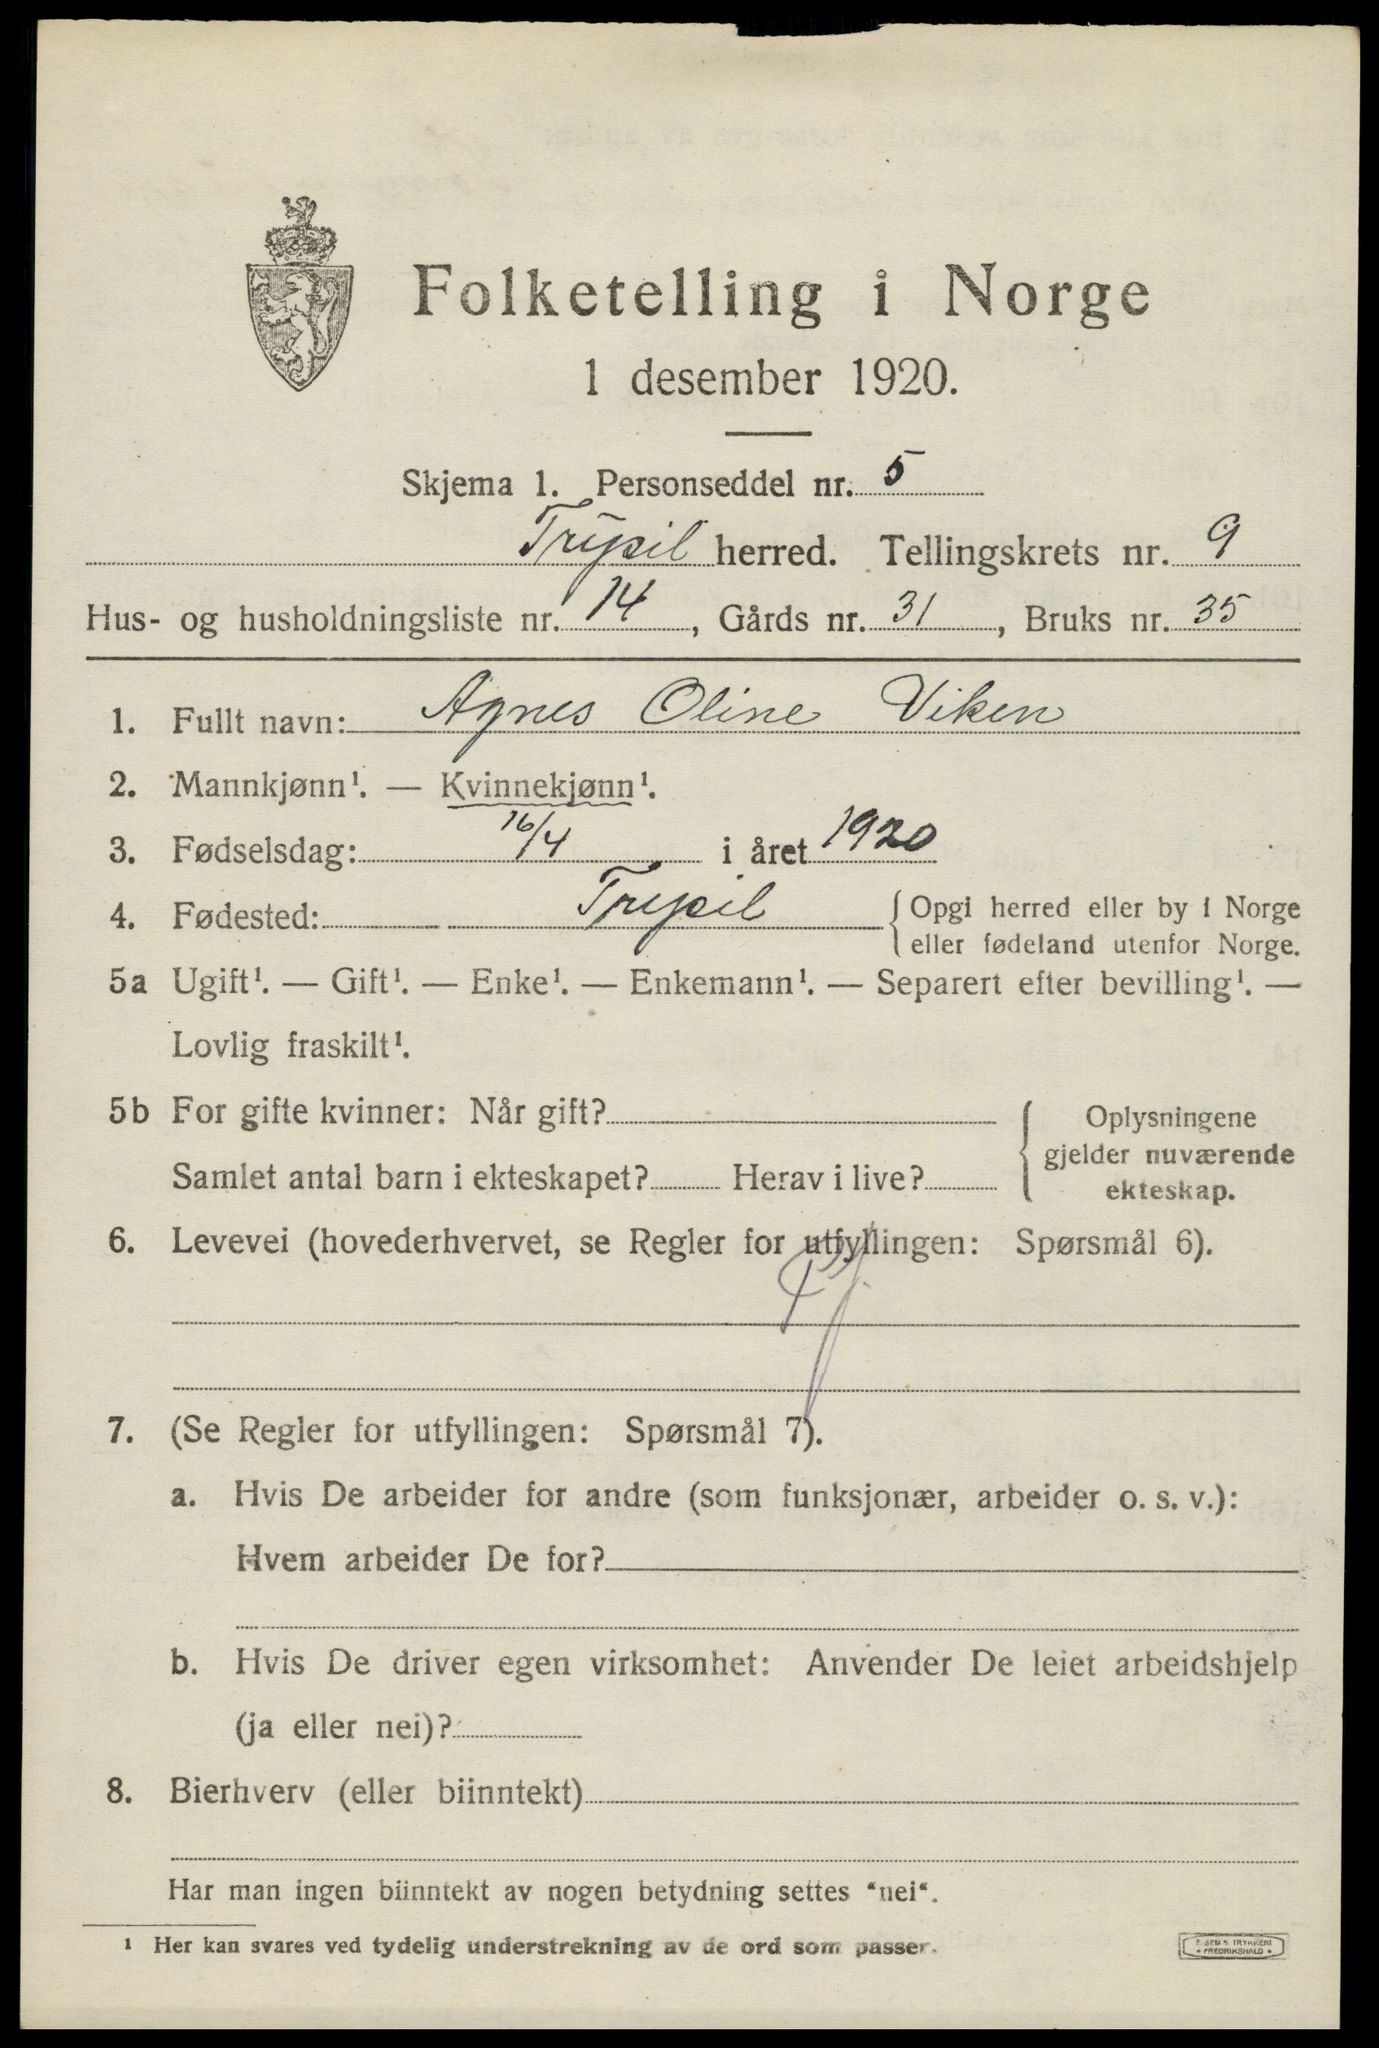 Folketelling i Norge
1 desember 1920.
Skjema 1. Personseddel nr. 5
Trysil herred. Tellingskrets nr. 9
Hus- og husholdningsliste nr. 14, Gårds nr. 31, Bruks nr. 35
1. Fullt navn: Agnes Oline Viken
2. Mannkjønn¹. — Kvinnekjønn¹.
3. Fødselsdag: 16/4 i året 1920
4. Fødested: Trysil { Opgi herred eller by i Norge
eller fødeland utenfor Norge.
5a Ugift¹. — Gift¹. — Enke¹. — Enkemann¹. — Separert efter bevilling¹. —
Lovlig fraskilt¹.
5b For gifte kvinner: Når gift?
Samlet antal barn i ekteskapet? Herav i live?
Oplysningene
gjelder nuværende
ekteskap.
6. Levevei (hovederhvervet, se Regler for utfyllingen: Spørsmål 6).
7. (Se Regler for utfyllingen: Spørsmål 7).
a. Hvis De arbeider for andre (som funksjonær, arbeider o. s. v.):
Hvem arbeider De for?
b. Hvis De driver egen virksomhet: Anvender De leiet arbeidshjelp
(ja eller nei)?
8. Bierhverv (eller biinntekt)
Har man ingen biinntekt av nogen betydning settes "nei".
¹ Her kan svares ved tydelig understrekning av de ord som passer.
TRYKKERI
FREDRIKSHALD